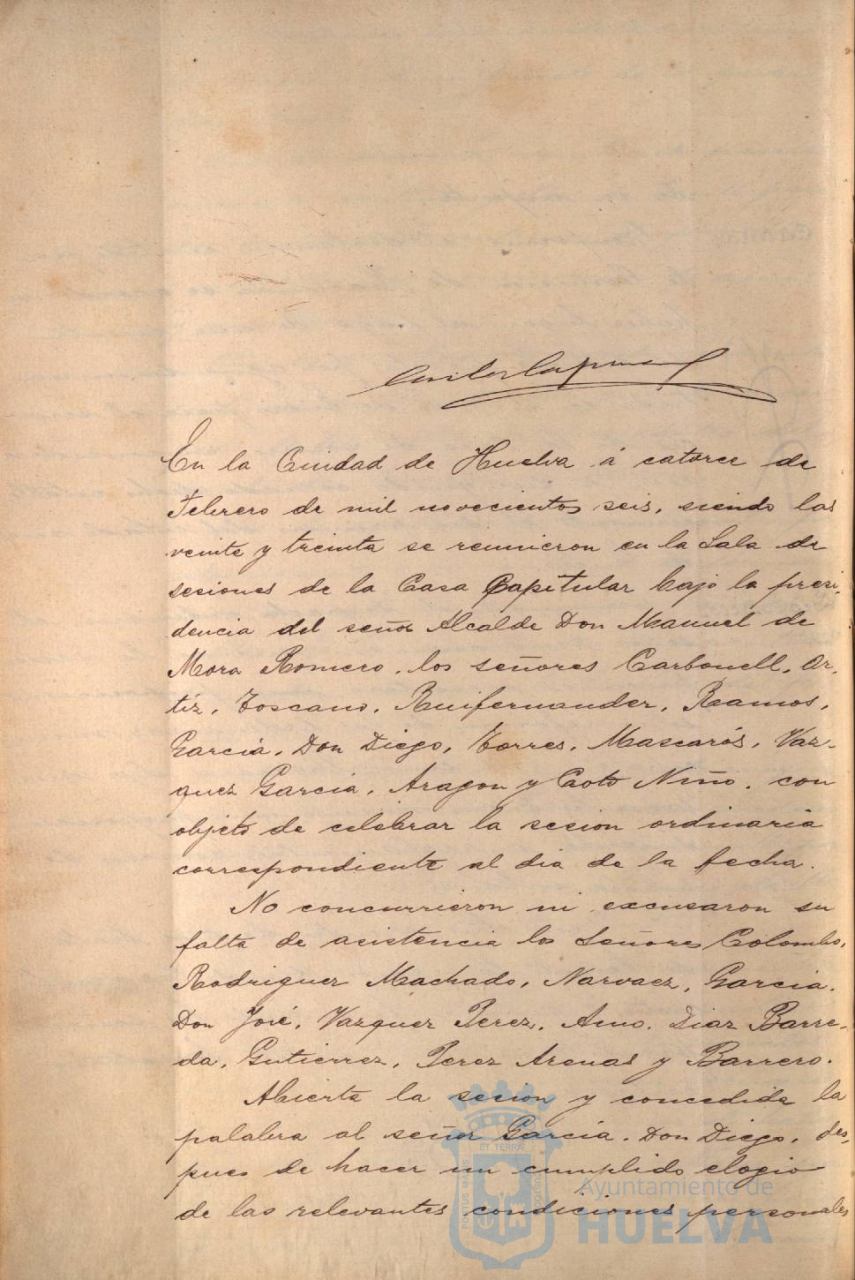 En la Ciudad de Huelva á catorce de
Febrero de mil novecientos seis, siendo las
veinte y treinta se reunieron en la Sala de
sesiones de la Casa Capitular bajo la presi-
dencia del señor Alcalde Don Manuel de
Mora Romero, los señores Carbonell, Or-
tíz, Toscano, Ruifernandez, Ramos,
García, Don Diego, Torres, Mascarós, Vaz-
quez García, Aragon y Coto Niño, con
objeto de celebrar la sesion ordinaria
correspondiente al dia de la fecha.
No concurrieron ni excusaron su
falta de asistencia los Señores Colombo,
Rodriguez Machado, Narvaez, García,
Don José, Vazquez Perez, Amo, Diaz Barre-
da, Gutierrez, Perez Arenas y Barrero.
Abierta la sesion y concedida la
palabra al señor García, Don Diego, des-
pues de hacer un cumplido elogio
de las relevantes condiciones personales
PORTUS MARIS ET TERRAE CUSTODIA
Ayuntamiento de
HUELVA